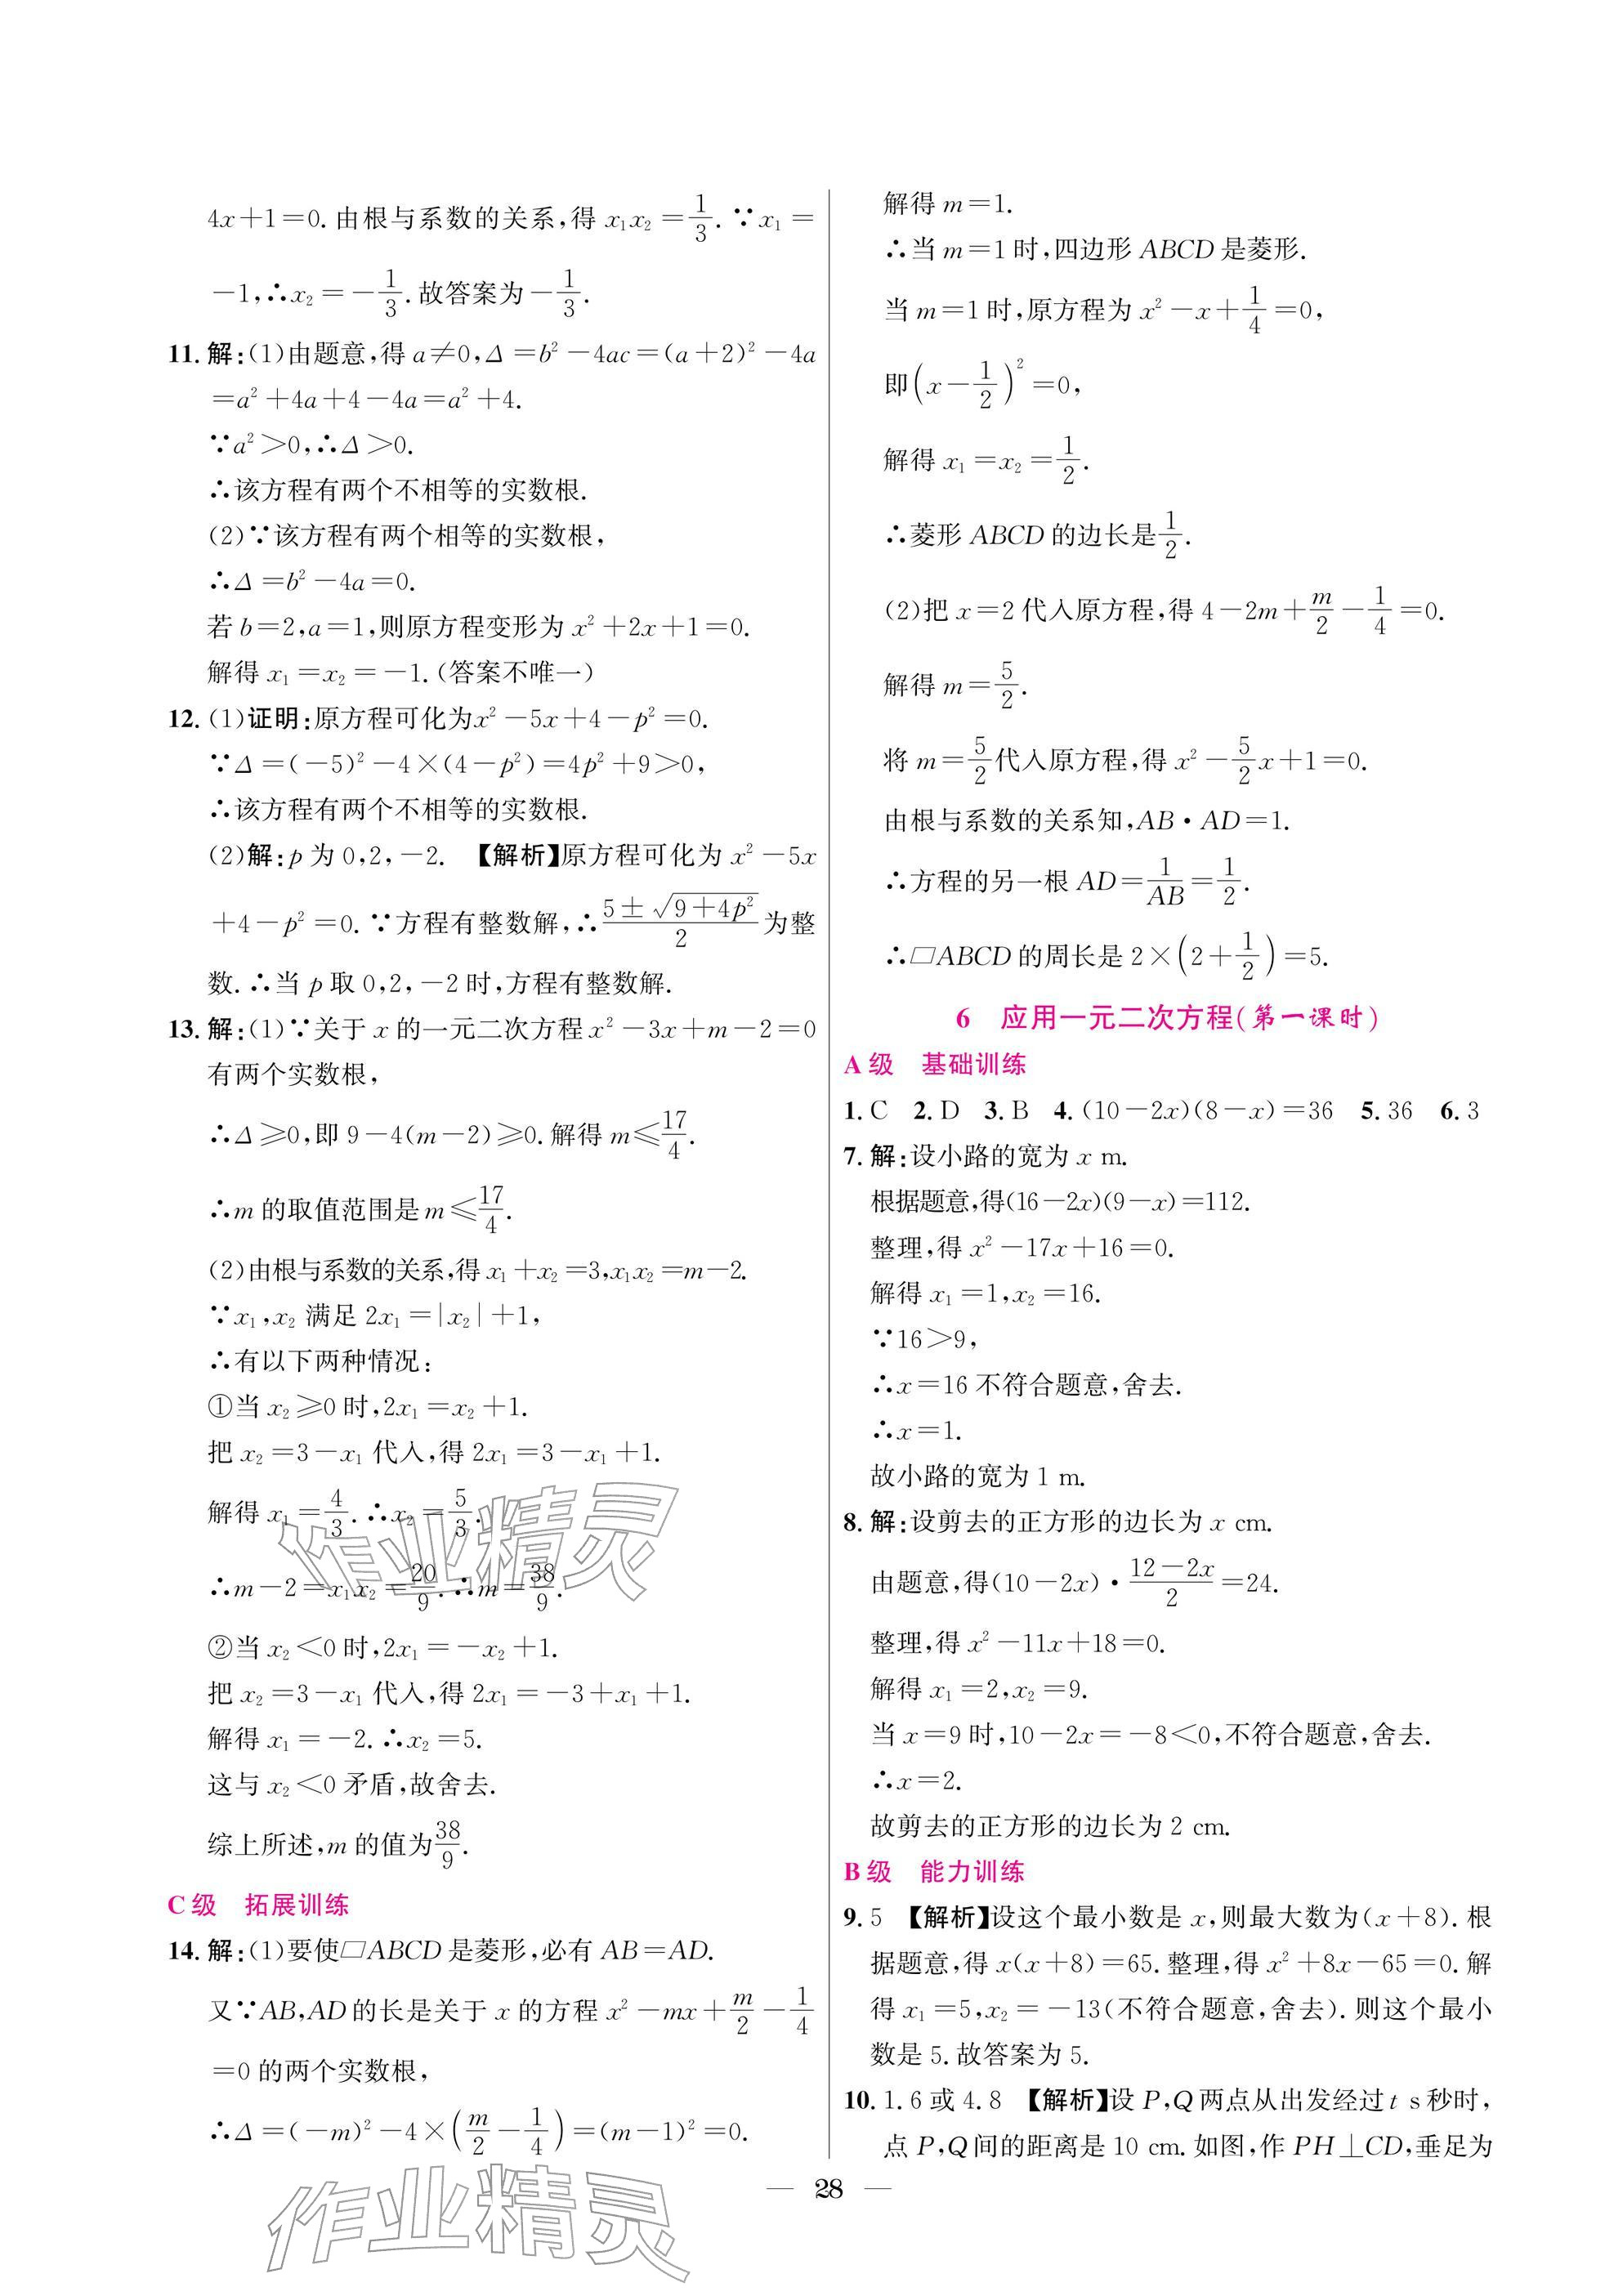 4x+1=0.由根与系数的关系,得 x₁x₂=1/3.∵x₁=
-1,∴x₂=-1/3.故答案为-1/3.
11.解:(1)由题意,得 a≠0,Δ=b²-4ac=(a+2)²-4a
=a²+4a+4-4a=a²+4.
∵a²>0,∴Δ>0.
∴该方程有两个不相等的实数根.
(2)∵该方程有两个相等的实数根,
∴Δ=b²-4a=0.
若 b=2,a=1,则原方程变形为 x²+2x+1=0.
解得 x₁=x₂=-1.(答案不唯一)
12.(1)证明:原方程可化为x²-5x+4-p²=0.
∵Δ=(-5)²-4×(4-p²)=4p²+9>0,
∴该方程有两个不相等的实数根.
(2)解:p 为 0,2,-2. 【解析】原方程可化为 x²-5x
+4-p²=0.∵方程有整数解,∴(5±√(9+4p²))/2为整
数.∴当 p 取 0,2,-2 时,方程有整数解.
13.解:(1)∵关于 x 的一元二次方程 x²-3x+m-2=0
有两个实数根,
∴Δ≥0,即 9-4(m-2)≥0.解得 m≤17/4.
∴m 的取值范围是 m≤17/4.
(2)由根与系数的关系,得 x₁+x₂=3,x₁x₂=m-2.
∵x₁,x₂ 满足 2x₁=|x₂|+1,
∴有以下两种情况:
①当 x₂≥0 时,2x₁=x₂+1.
把 x₂=3-x₁ 代入,得 2x₁=3-x₁+1.
解得 x₁=4/3.∴x₂=5/3.
∴m-2=x₁x₂=20/9.∴m=38/9.
②当 x₂<0 时,2x₁=-x₂+1.
把 x₂=3-x₁ 代入,得 2x₁=-3+x₁+1.
解得 x₁=-2.∴x₂=5.
这与 x₂<0 矛盾,故舍去.
综上所述,m 的值为38/9.
C级 拓展训练
14.解:(1)要使□ABCD 是菱形,必有 AB=AD.
又∵AB,AD 的长是关于 x 的方程 x²-mx+m/2-1/4
=0 的两个实数根,
∴Δ=(-m)²-4×(m/2-1/4)=(m-1)²=0.
解得 m=1.
∴当 m=1 时,四边形 ABCD 是菱形.
当 m=1 时,原方程为 x²-x+1/4=0,
即(x-1/2)²=0,
解得 x₁=x₂=1/2.
∴菱形 ABCD 的边长是1/2.
(2)把 x=2 代入原方程,得 4-2m+m/2-1/4=0.
解得 m=5/2.
将 m=5/2代入原方程,得 x²-5/2x+1=0.
由根与系数的关系知,AB·AD=1.
∴方程的另一根 AD=1/AB=1/2.
∴□ABCD 的周长是 2×(2+1/2)=5.
6 应用一元二次方程(第一课时)
A级 基础训练
1.C 2.D 3.B 4.(10-2x)(8-x)=36 5.36 6.3
7.解:设小路的宽为 x m.
根据题意,得(16-2x)(9-x)=112.
整理,得 x²-17x+16=0.
解得 x₁=1,x₂=16.
∵16>9,
∴x=16 不符合题意,舍去.
∴x=1.
故小路的宽为 1 m.
8.解:设剪去的正方形的边长为 x cm.
由题意,得(10-2x)·(12-2x)/2=24.
整理,得 x²-11x+18=0.
解得 x₁=2,x₂=9.
当 x=9 时,10-2x=-8<0,不符合题意,舍去.
∴x=2.
故剪去的正方形的边长为 2 cm.
B级 能力训练
9.5 【解析】设这个最小数是 x,则最大数为(x+8).根
据题意,得 x(x+8)=65.整理,得 x²+8x-65=0.解
得 x₁=5,x₂=-13(不符合题意,舍去).则这个最小
数是 5.故答案为 5.
10.1.6 或 4.8 【解析】设 P,Q 两点从出发经过 t s秒时,
点 P,Q 间的距离是 10 cm.如图,作 PH⊥CD,垂足为
— 28 —
作业精灵
作业精灵